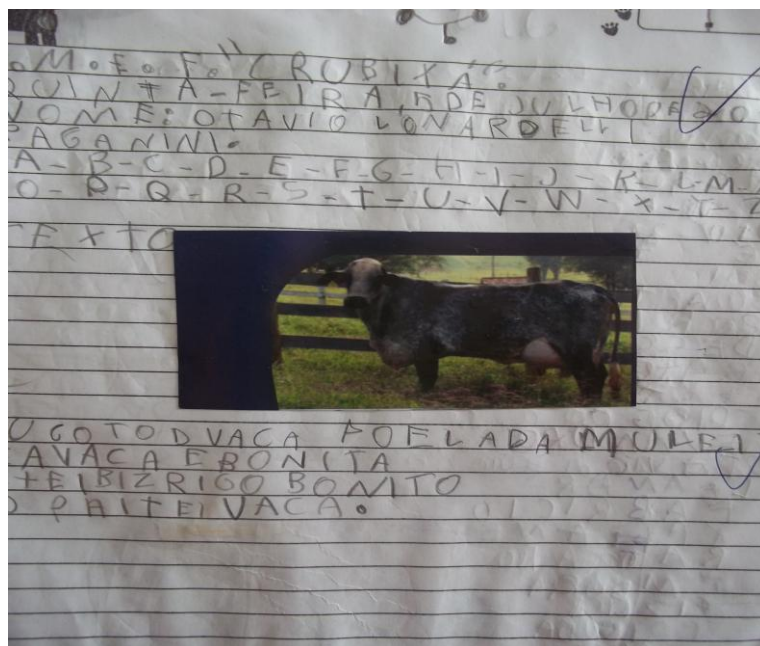 .M.E.F. "CRUBIXÁ".
QUINTA-FEIRA, 5 DE JULHO DE 20
NOME: OTAVIO LONARDELLI
PAGANINI.
A-B-C-D-E-F-G-H-I-J-K-L-M-
O-P-Q-R-S-T-U-V-W-X-Y-Z
TEXTO
UGOTODVACA POELADAMULEI
AVACAEBONITA
TEIBIZRIGO BONITO
O PAITEIVACA.